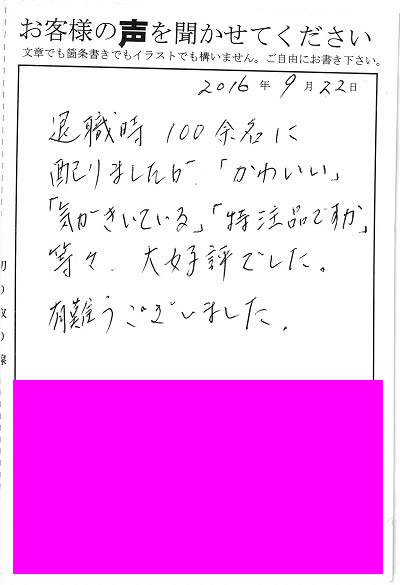 お客様の声を聞かせてください
文章でも箇条書きでもイラストでも構いません。ご自由にお書き下さい。
2016年9月22日
退職時 100余名に
配りましたが、「かわいい」
「気がきいている」「特注品ですか」
等々、大好評でした。
有難うございました。
切り取り線